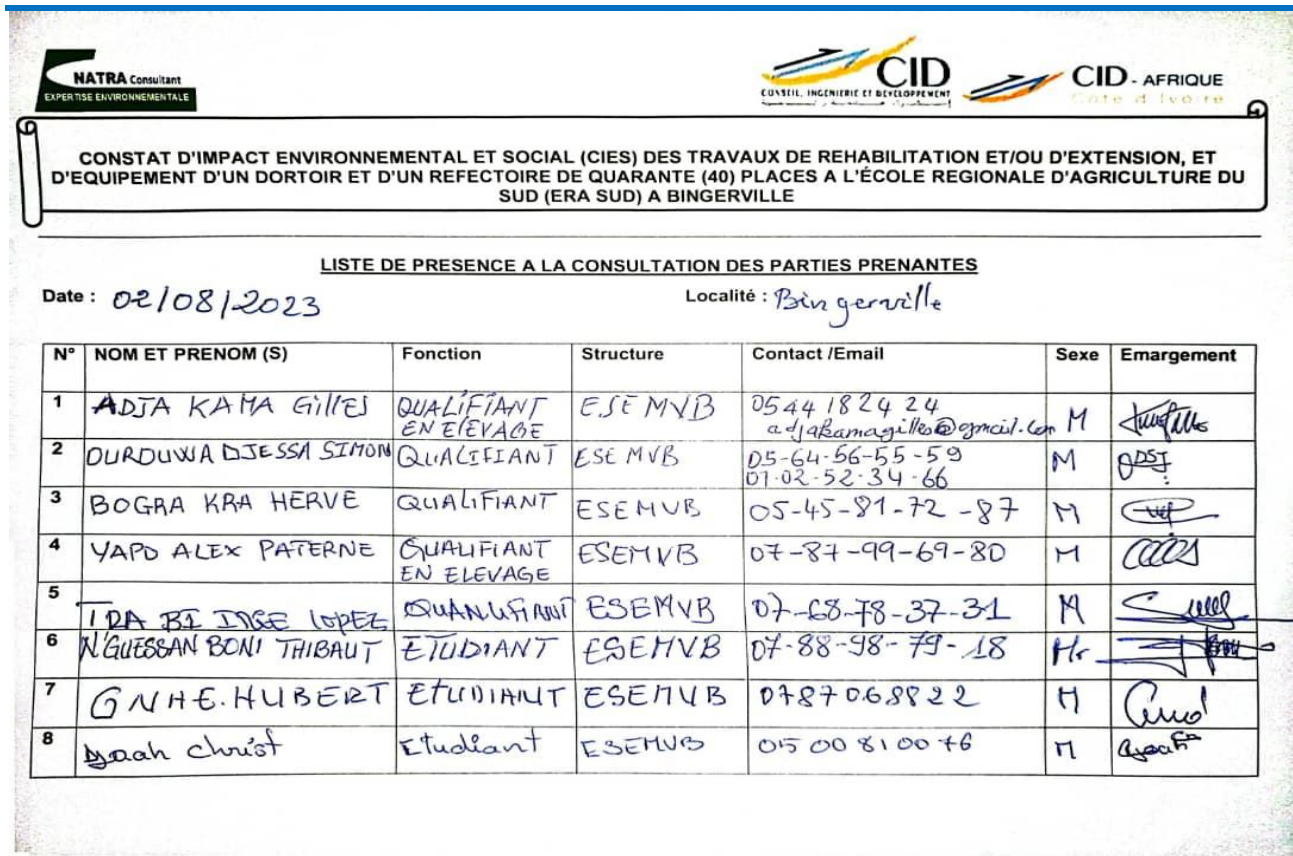 NATRA Consultant
EXPERTISE ENVIRONNEMENTALE
CID
CONSEIL, INGENIERIE ET DEVELOPPEMENT
CID - AFRIQUE
Côte d'Ivoire
CONSTAT D'IMPACT ENVIRONNEMENTAL ET SOCIAL (CIES) DES TRAVAUX DE REHABILITATION ET/OU D'EXTENSION, ET
D'EQUIPEMENT D'UN DORTOIR ET D'UN REFECTOIRE DE QUARANTE (40) PLACES A L'ÉCOLE REGIONALE D'AGRICULTURE DU
SUD (ERA SUD) A BINGERVILLE
LISTE DE PRESENCE A LA CONSULTATION DES PARTIES PRENANTES
Date : 02/08/2023 Localité : Bingerville
N° NOM ET PRENOM (S) Fonction Structure Contact /Email Sexe Emargement
1 ADJA KAMA Gilles QUALIFIANT EN ELEVAGE ESEMVB 05 44 18 24 24 adjakamagilles@gmail.com M
2 OUROUWA DJESSA SIMON QUALIFIANT ESEMVB 05-64-56-55-59 01-02-52-34-66 M ODSI
3 BOGRA KRA HERVE QUALIFIANT ESEMVB 05-45-81-72-87 M
4 YAPO ALEX PATERNE QUALIFIANT EN ELEVAGE ESEMVB 07-87-99-69-80 M
5 BI LOPEZ ESEMVB 07-68-78-37-31 M
6 N'GUESSAN BONI THIBAUT ETUDIANT ESEMVB 07-88-98-79-18 Mr
7 GNHE. HUBERT ETUDIANT ESEMVB 0787068822 M
8 Christ Etudiant ESEMVB 05 00 81 00 76 M